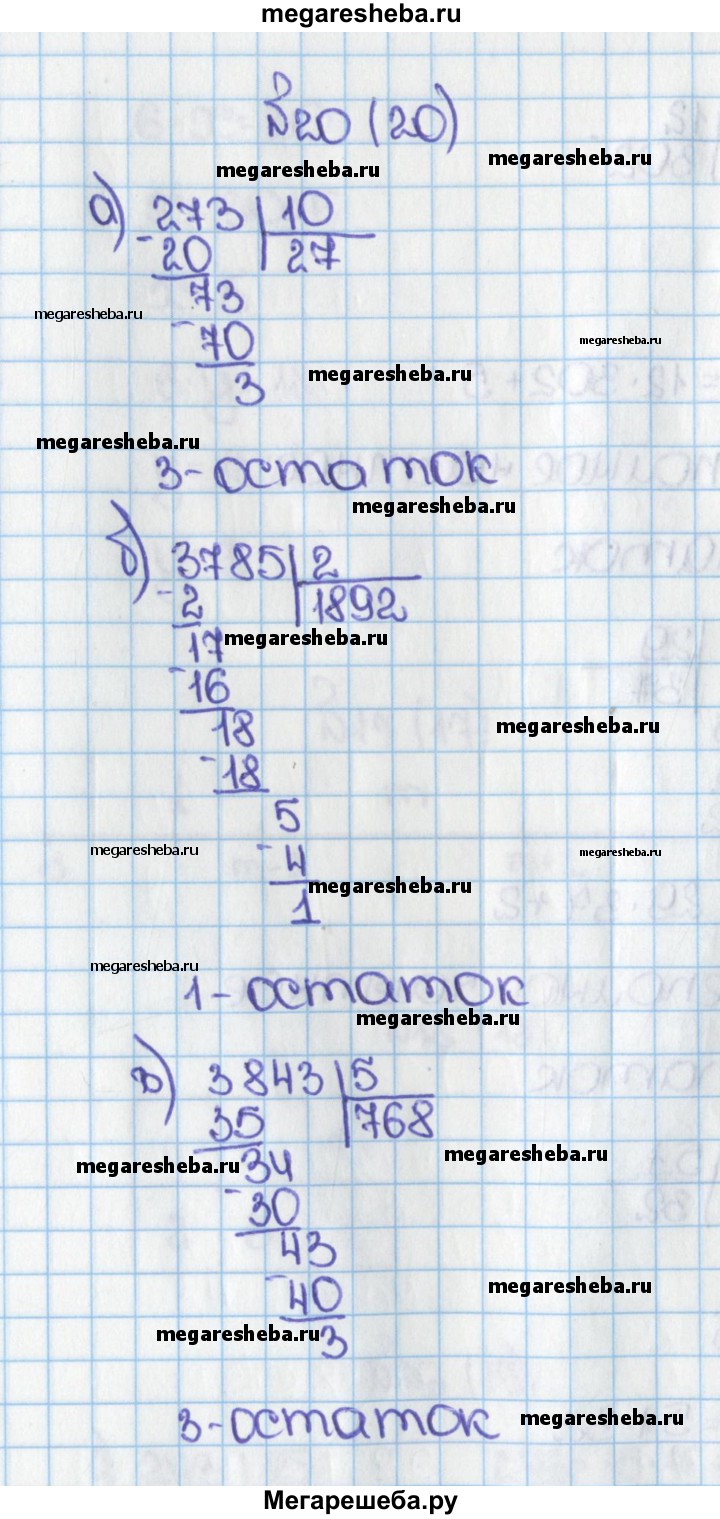 megaresheba.ru
№20 (20)
megaresheba.ru
megaresheba.ru
а) 273 | 10
- 20 | 27
73
megaresheba.ru
megaresheba.ru
- 70
megaresheba.ru
3
megaresheba.ru
3 - остаток
megaresheba.ru
б) 3785 | 2
- 2 | 1892
17 megaresheba.ru
- 16
18
megaresheba.ru
- 18
5
megaresheba.ru
megaresheba.ru
- 4
megaresheba.ru
1
megaresheba.ru
1 - остаток
megaresheba.ru
в) 3843 | 5
35 | 768
megaresheba.ru
megaresheba.ru 34
- 30
43
megaresheba.ru
- 40
megaresheba.ru 3
3 - остаток
megaresheba.ru
Мегарешеба.ру